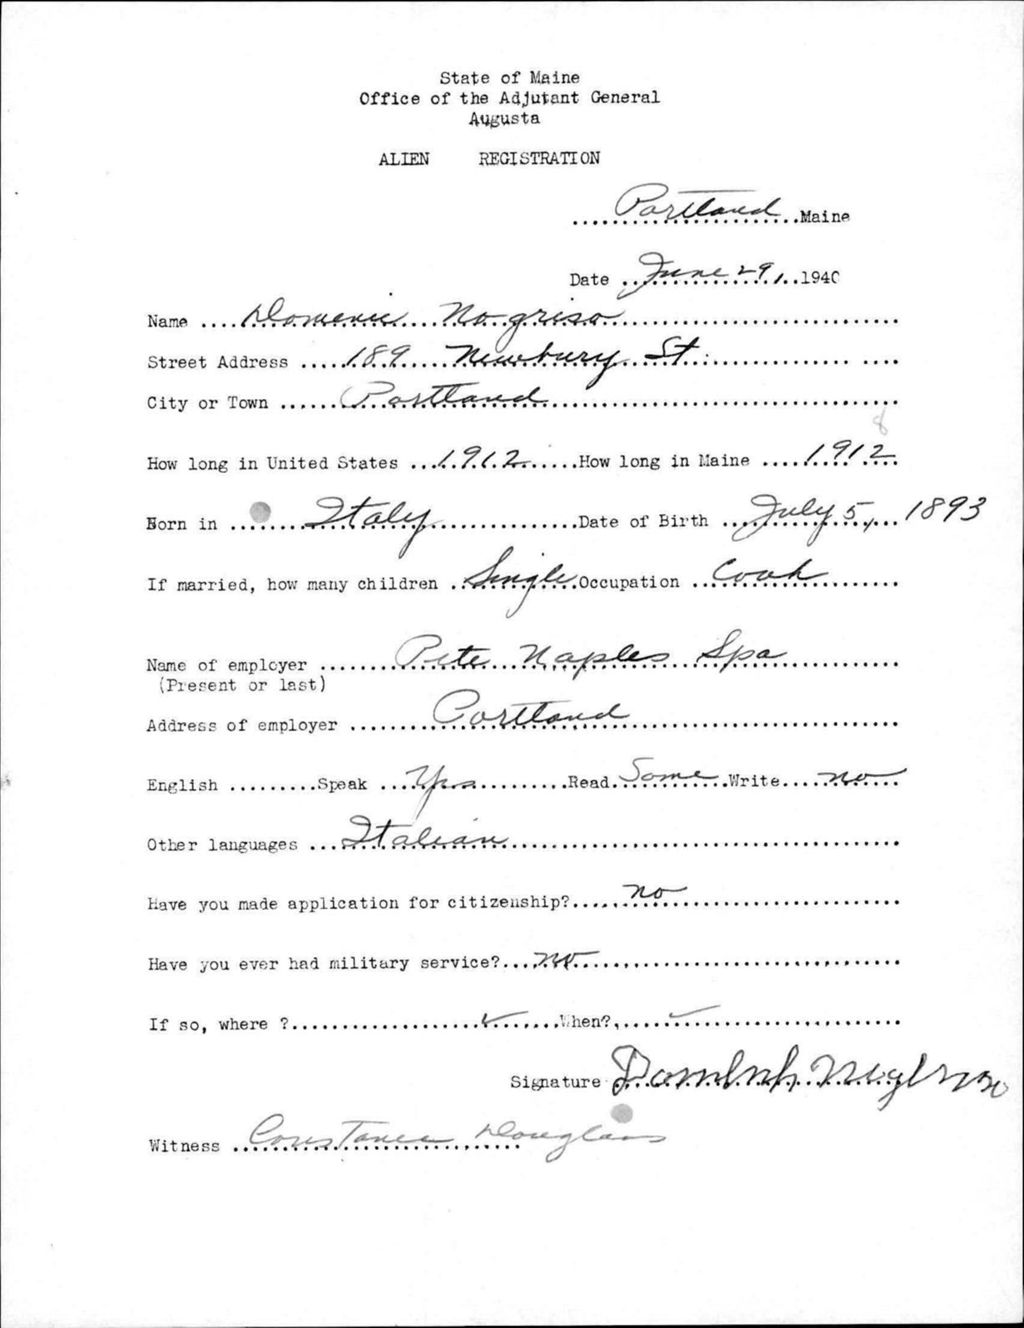 State of Maine
Office of the Adjutant General
Augusta
ALIEN REGISTRATION
Portland Maine
Date June 29, 1940
Name Domenic Nogriso
Street Address 189 Newbury St.
City or Town Portland
8
How long in United States 1912 How long in Maine 1912
Born in Italy Date of Birth July 5, 1893
If married, how many children Single Occupation Cook
Name of employer Pete Naples Spa
(Present or last)
Address of employer Portland
English Speak Yes Read Some Write no
Other languages Italian
Have you made application for citizenship? no
Have you ever had military service? no
If so, where ? ✓ When? ✓
Signature
Witness Constance Douglass